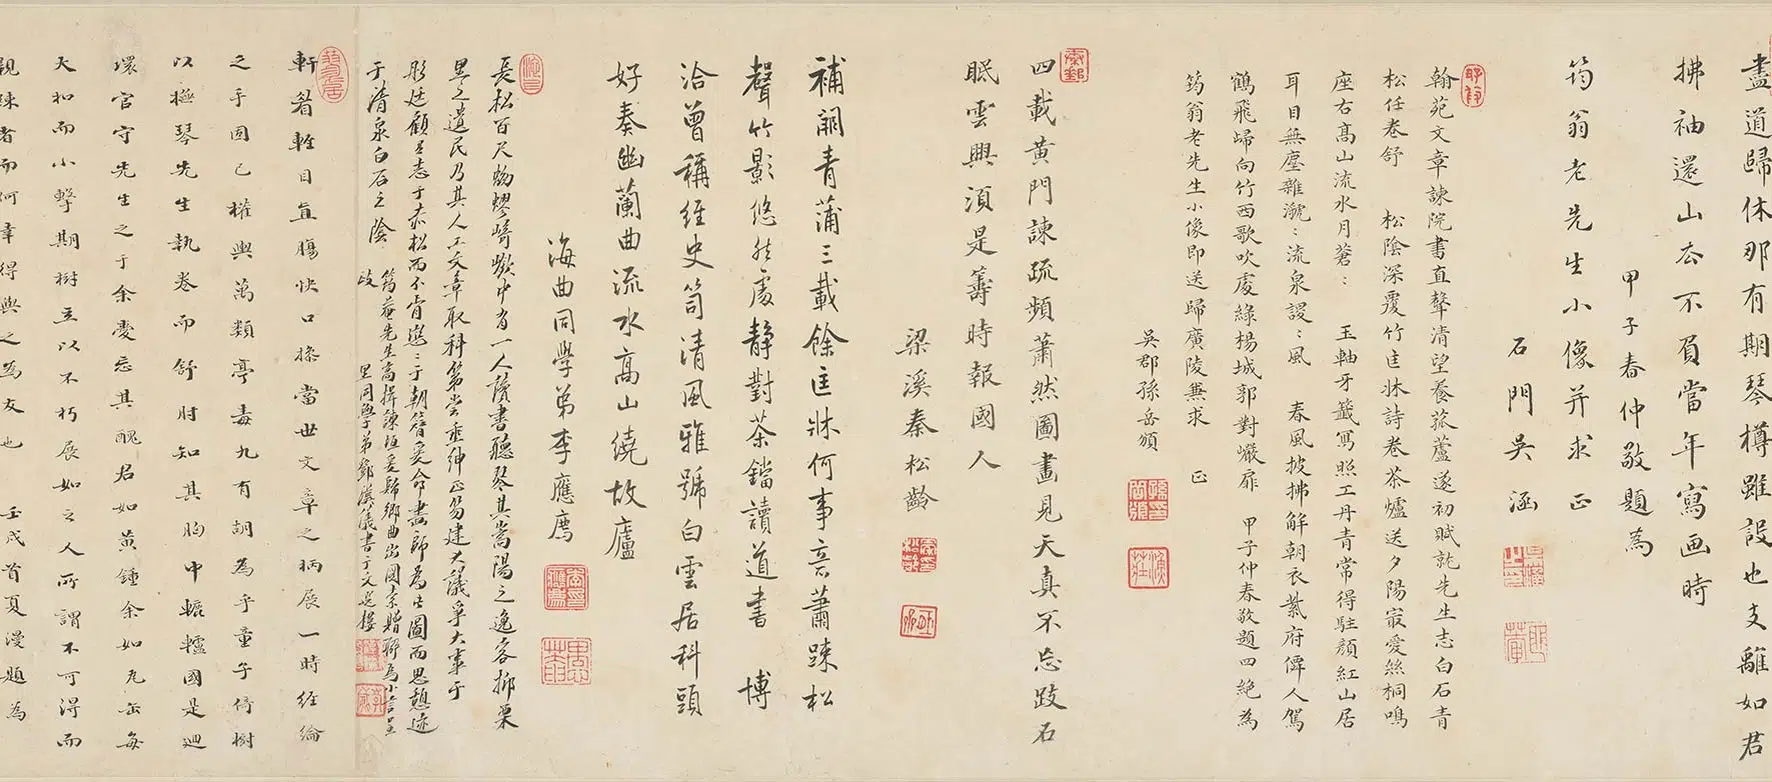 盡道歸休那有期琴樽雖設也支離如君
拂袖還山去不負當年寫画時
甲子春仲敬題為
筠翁老先生小像并求正
石門吳涵
翰苑文章諫院書直聲清望養菰蘆遂初賦就先生志白石青
松任卷舒 松陰深覆竹匡牀詩卷茶爐送夕陽最愛絲桐鳴
座右高山流水月蒼：玉軸牙籤寫照工丹青常得駐顏紅山居
耳目無塵雜潺：流泉謖：風 春風披拂解朝衣紫府僊人駕
鶴飛歸向竹西歌吹處綠楊城郭對巖扉 甲子仲春敬題四絕為
筠翁老先生小像即送歸廣陵兼求 正
吳郡孫岳頒
四載黃門諫疏頻蕭然圖畫見天真不忘跂石
眠雲興須是籌時報國人
梁溪秦松齡
補闕青蒲三載餘匡牀何事音蕭疎松
聲竹影悠然處靜對茶鐺讀道書 博
洽曾稱經史笥清風雅號白雲居科頭
好奏幽蘭曲流水高山繞故廬
海曲同學弟李應廌
長松百尺
有一人讀書聽琴其嵩陽之逸客
里之遺民乃其人工文章取科第嘗垂紳正笏建大議爭大事于
彤廷顧
志于赤松而不肯
于朝簪爰命畫師為此圖而思憩迹
于清泉白石之陰
筠菴先生高
里同學弟鄧漢儀書于文選樓
軒著
目直腸快口
當世文章之柄展一時經綸
之手固已權輿萬類亭毒九有胡為乎童子倚樹
以撫琴先生執卷而舒肘知其胸中轆轤國是迴
環官守先生之于余
忘其醜君如黃鍾余如瓦缶每
大扣而小擊期樹立以不朽展如之人所謂不可得而
親疎者而何幸得與之為友也 壬戌首夏漫題為